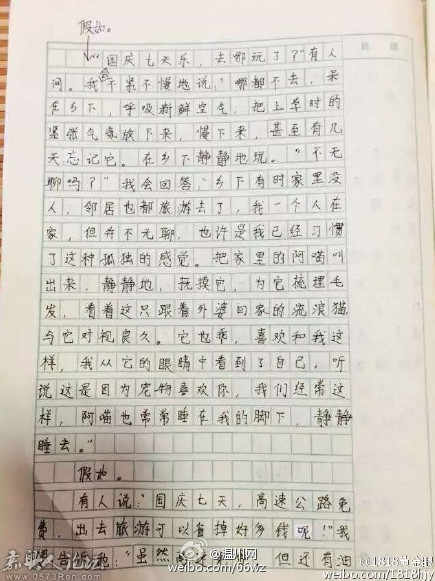 假如。
“国庆七天乐，去哪玩了？”有人
问。我会不紧不慢地说，“哪都不去，呆
在乡下，呼吸新鲜空气，把上学时的
紧张气氛放下来，慢下来，甚至有几
天忘记它。在乡下静静地玩。”“不无
聊吗？”我会回答，“乡下有时家里没
人，邻居也都旅游去了，我一个人在
家，但并不无聊，也许是我已经习惯
了这种孤独的感觉。把家里的阿喵叫
出来，静静地，抚摸它，为它梳理毛
发，看着这只跟着外婆回家的流浪猫
与它对视良久。它也乖，喜欢和我这
样，我从它的眼睛中看到了自己。听
说这是因为宠物喜欢你，我们经常这
样，阿喵也常常睡在我的脚下，静静
睡去。”
假如。
有人说：“国庆七天，高速公路免
费，出去旅游可以省掉好多钱呢！”我
“虽然 但还有油
温州网
weibo.com/66wz
@1818黄金眼
weibo.com/1818hjy
www.0573Ren.com